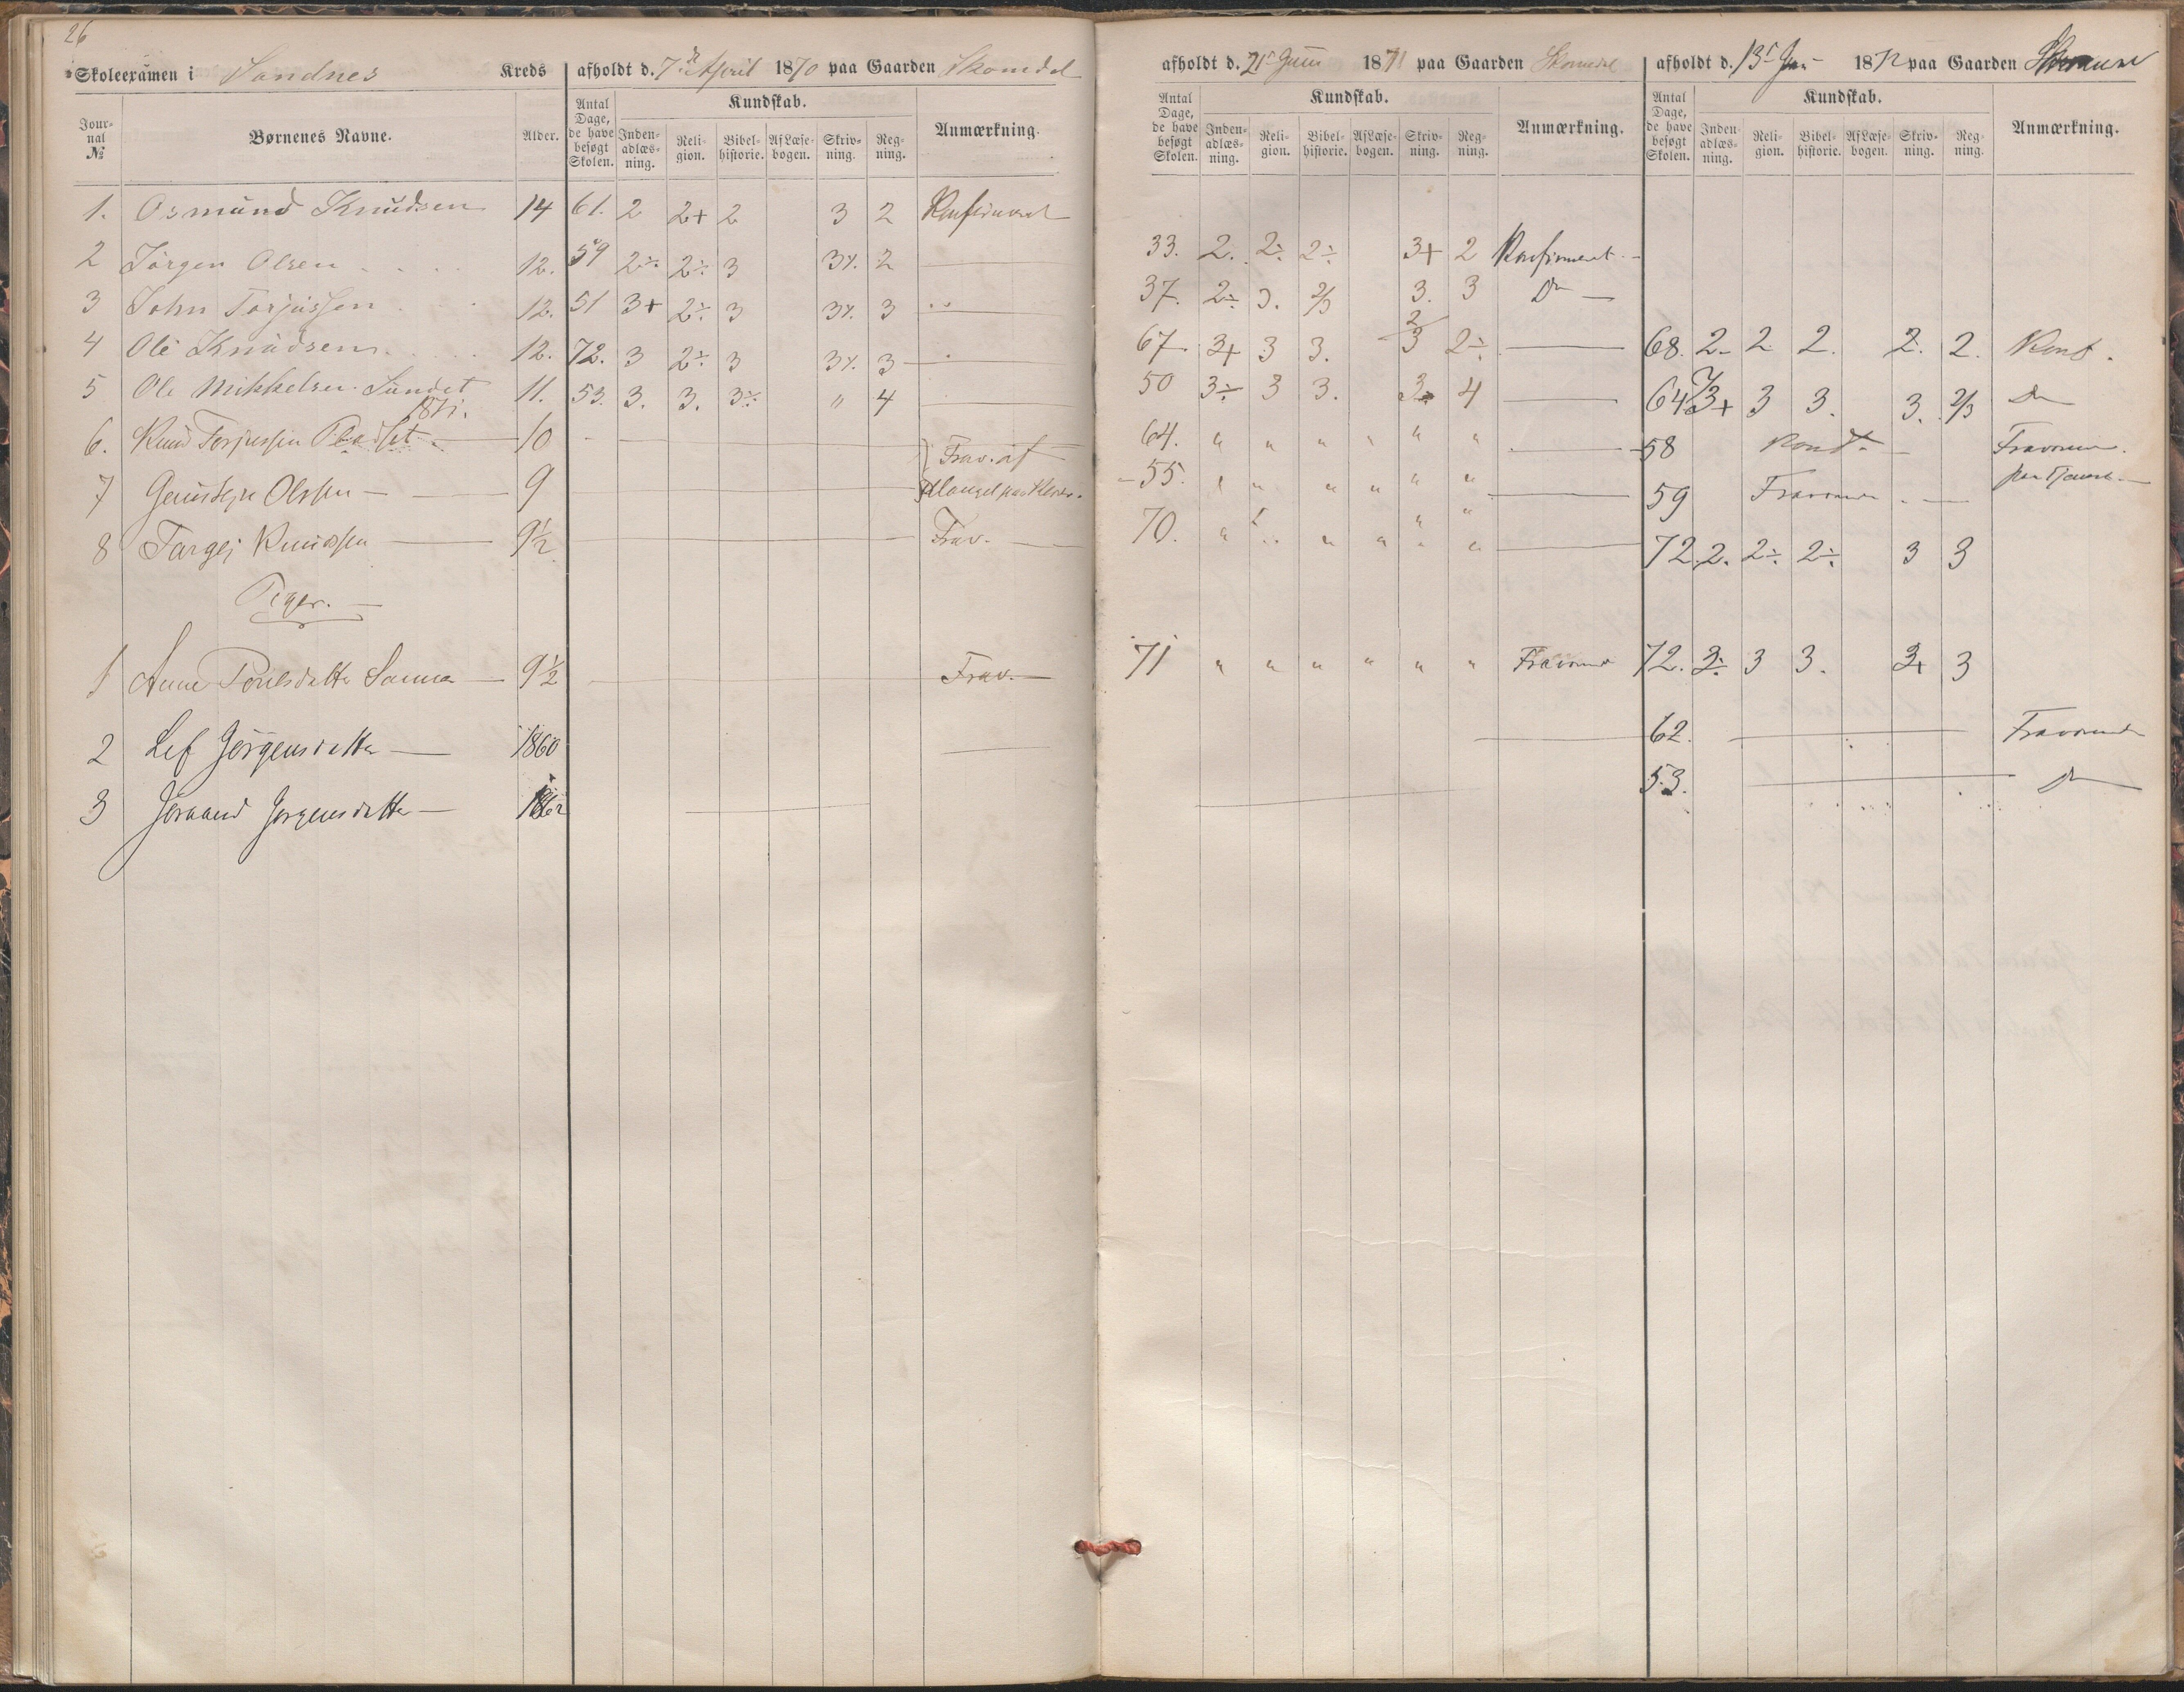 26
Skoleexamen i Sandnes Kreds afholdt d. 7de April 1870 paa Gaarden Skomdal
Journal № Børnenes Navne. Alder. Antal Dage, de have besøgt Skolen. Kundskab. Indenadlæsning. Religion. Bibelhistorie. Af Læsebogen. Skrivning. Regning. Anmærkning.
1. Osmund Knudsen 14 61. 2 2+ 2 3 2 Konfirmeret
2 Jørgen Olsen 12. 59 2÷ 2÷ 3 3÷ 2
3 John Torjussen 12. 51 3+ 2÷ 3 3÷ 3
4 Ole Knudsen 12. 72. 3 2÷ 3 3÷ 3
5 Ole Mikkelsen Sundet 11. 53. 3. 3. 3÷ " 4
1871.
6. Knud Torjussen 10 Frav. af
7 Olssen 9 Mangel paa Klæder.
8 Targej Knudssen 9½ Frav.
Piger.
1 Anne 9½ Frav.
2 Lef Jørgensdatter 1860
3 Jøraand Jørgensdatter 1862
afholdt d. 21de Juni 1871 paa Gaarden Skomdal
Antal Dage, de have besøgt Skolen. Kundskab. Indenadlæsning. Religion. Bibelhistorie. Af Læsebogen. Skrivning. Regning. Anmærkning.
33. 2. 2÷ 2÷ 3+ 2 Konfirmeret
37. 2÷ 3. 2/3 3. 3 Do
67 3+ 3 3. 2/3 2÷
50 3÷ 3 3. 3 4
64. " " " " " "
55. " " " " " "
70. " " " " " "
71 " " " " " " Fraværende
afholdt d. 13de Jan 1872 paa Gaarden
Antal Dage, de have besøgt Skolen. Kundskab. Indenadlæsning. Religion. Bibelhistorie. Af Læsebogen. Skrivning. Regning. Anmærkning.
68. 2 2 2. 2. 2. Konf.
64 3+ 3 3. 3. 2/3 Do
58 Fraværende
59 Fraværende paa Tjeneste
72. 2. 2÷ 2÷ 3 3
72. 3÷ 3 3. 3+ 3
62. Fraværende
53. Do